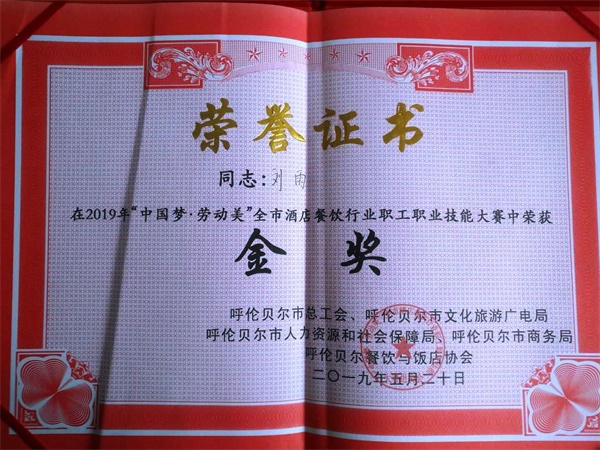 荣誉证书
同志:刘雨
在2019年“中国梦·劳动美”全市酒店餐饮行业职工职业技能大赛中荣获
金奖
呼伦贝尔市总工会、呼伦贝尔市文化旅游广电局
呼伦贝尔市人力资源和社会保障局、呼伦贝尔市商务局
呼伦贝尔餐饮与饭店协会
二〇一九年五月二十日